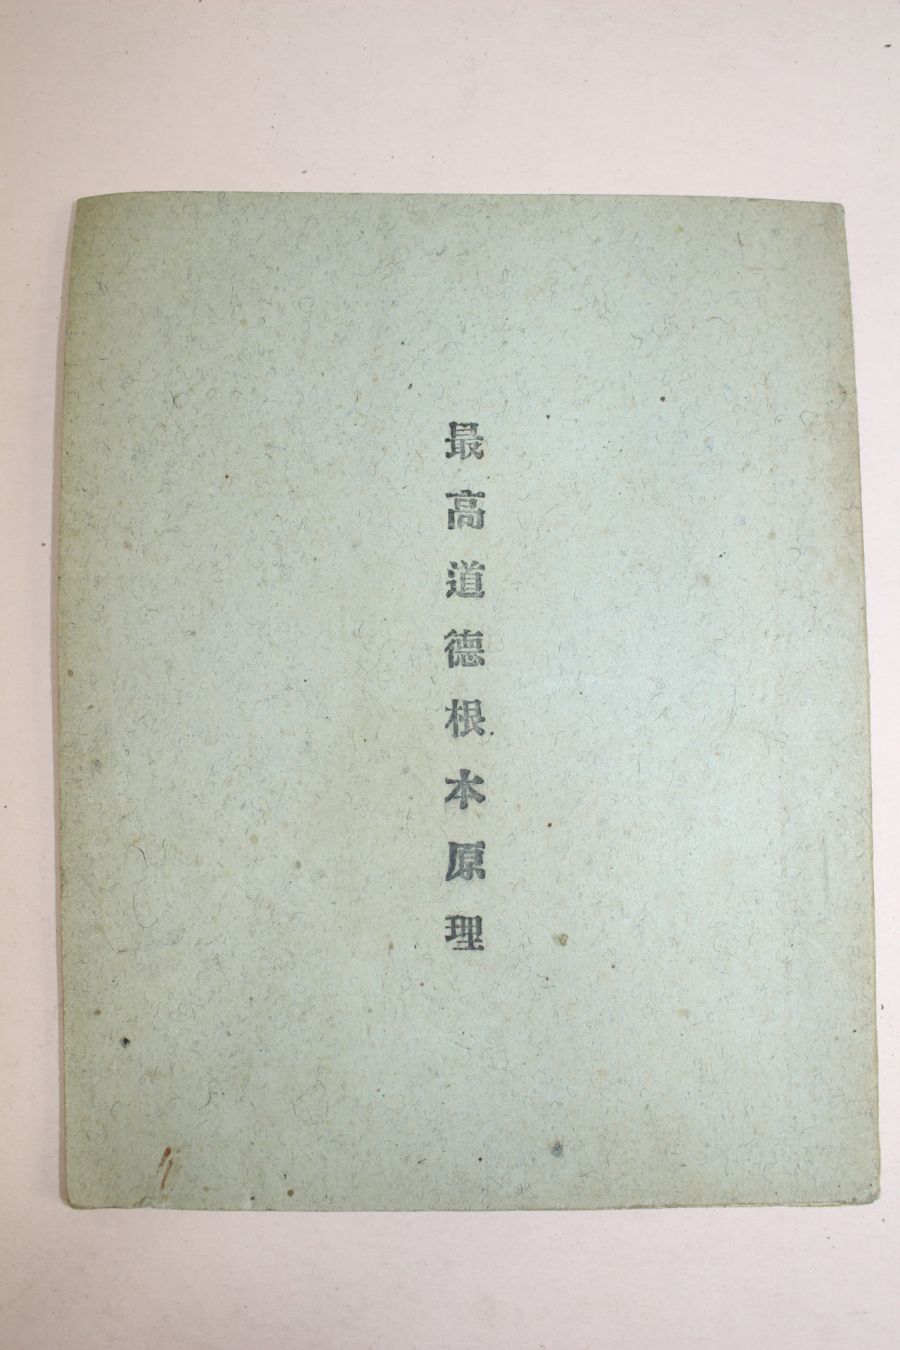 最高道德根本原理